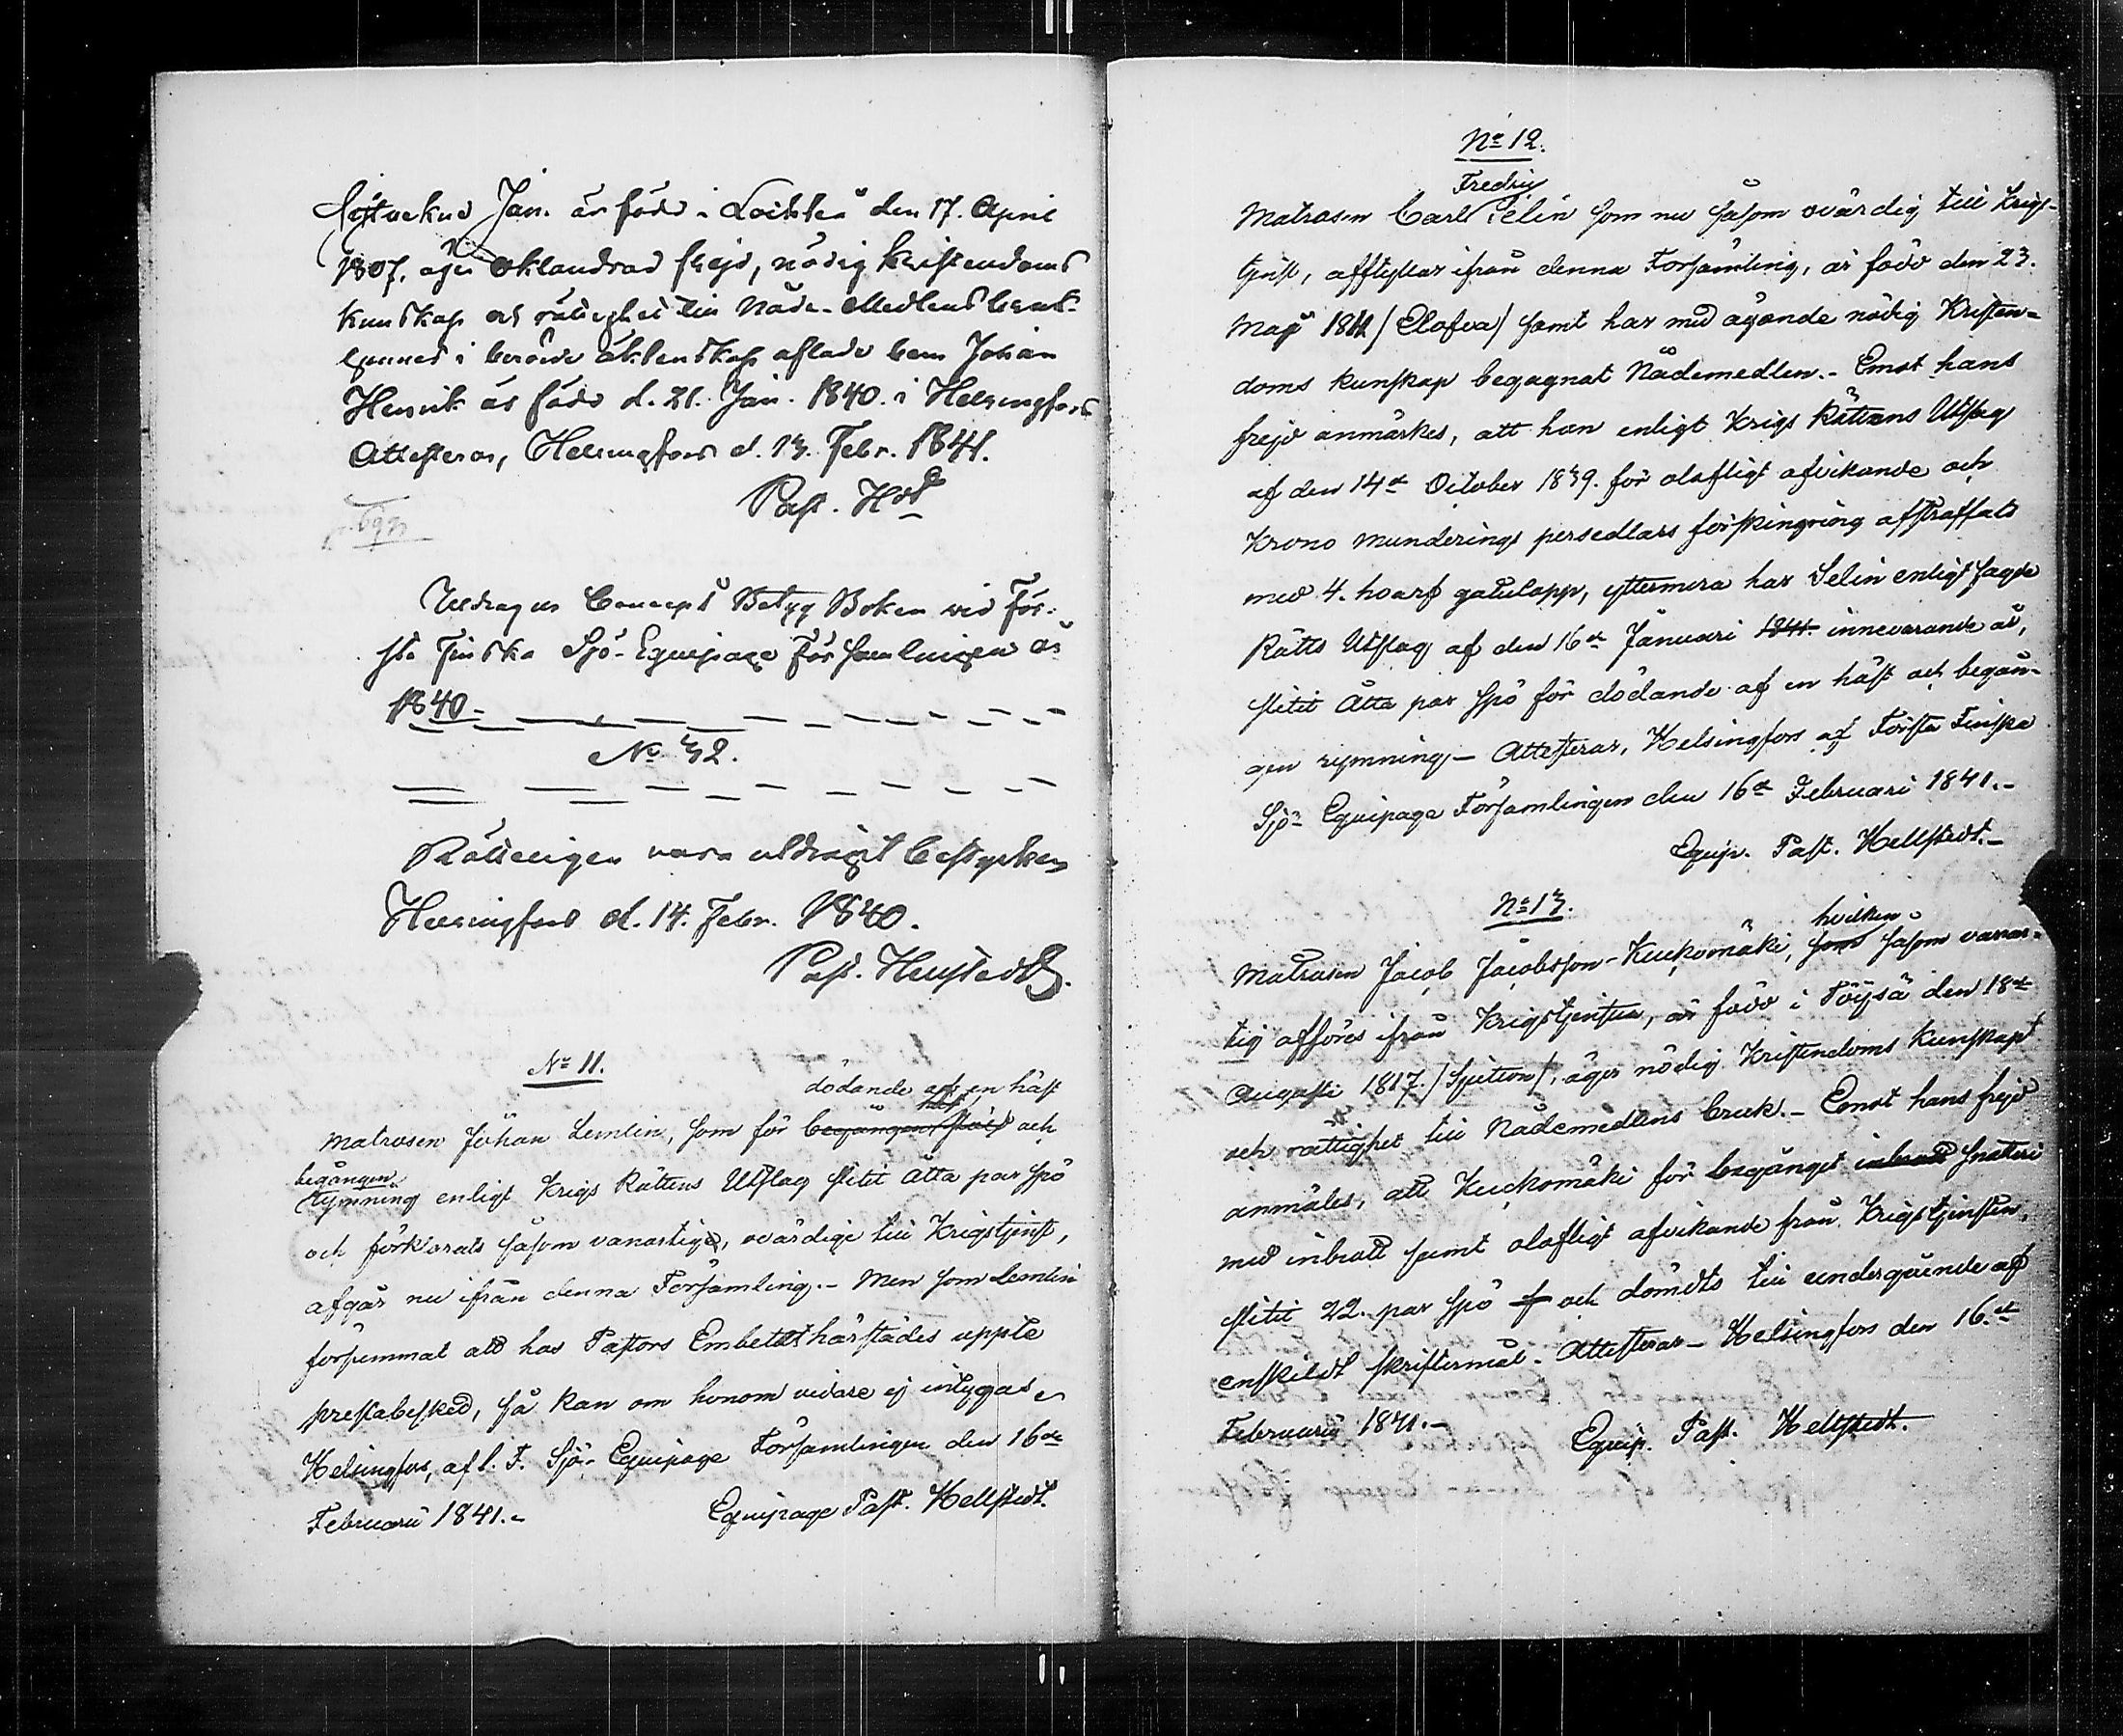 Jan. är född i Lochteå den 17. April
1807, äger oklandrad frejd, nödig kristendoms
kunskap och rättighet till Nåde-Medlens bruk
i berörde äktenskap aflade barn Johan
Henrik är född d. 21. Jan. 1840. i Helsingfors
Attesteras, Helsingfors d. 13. Febr. 1841.
Past. Hdt
Utdrag ur Concept Betyg Boken vid För-
sta Finska Sjö-Equipage Församlingen år
1840.
No 32.
Rätteligen vara utdragit bestyrker
Helsingfors d. 14. Febr. 1840.
Past. Hellstedt.
No 11.
dödande af en häst
Matrosen Johan Lemlin, som för begången och
begången
rymning enligt Krigs Rättens Utslag slitit Åtta par spö
och förklarats såsom vanartige, ovärdige till Krigstjenst,
afgår nu ifrån denna Församling.- Men som Lemlin
försummat att hos Pastors Embetet härstädes uppte
prestabesked, så kan om honom vidare ej intygas
Helsingfors, af 1. F. Sjö-Equipage Församlingen den 16de
Februarii 1841.-
Equipage Past. Hellstedt.
No 12.
Fredric
Matrosen Carl Selin som nu såsom ovärdig till Krigs-
tjenst, afflyttar ifrån denna Församling, är född den 23.
Maji 1811 /Elofva/ samt har med ägande nödig Kristen-
doms kunskap begagnat Nådemedlen.- Emot hans
frejd anmärkes, att han enligt Krigs Rättens Utslag
af den 14de October 1839. för olofligt afvikande och
Krono Munderings persedlars förskingring afstraffats
med 4. hvarf gatulopp, yttermera har Selin enligt sagde
Rätts Utslag af den 16de Januari 1841. innevarande år,
slitit Åtta par spö för dödande af en häst och begån-
gen rymning - Attesteras, Helsingfors af Första Finska
Sjö-Equipage Församlingen den 16de Februari 1841.-
Equip. Past. Hellstedt.-
No 13.
hvilken
Matrosen Jacob Jacobsson-Kuckomäki, som såsom vanar-
tig afföres ifrån Krigstjensten, är född i Töysä den 18de
Augusti 1817. /Sjutton/, äger nödig Kristendoms Kunskap
och rättighet till Nådemedlens bruk.- Emot hans frejd
anmäles, att Kuckomäki för begånget inbrott snatteri
med inbrott samt olofligt afvikande från Krigstjensten,
slitit 22. par spö och dömdts till undergående af
enskildt skriftermål. Attesteras - Helsingfors den 16de
Februarii 1841.-
Equip. Past. Hellstedt.